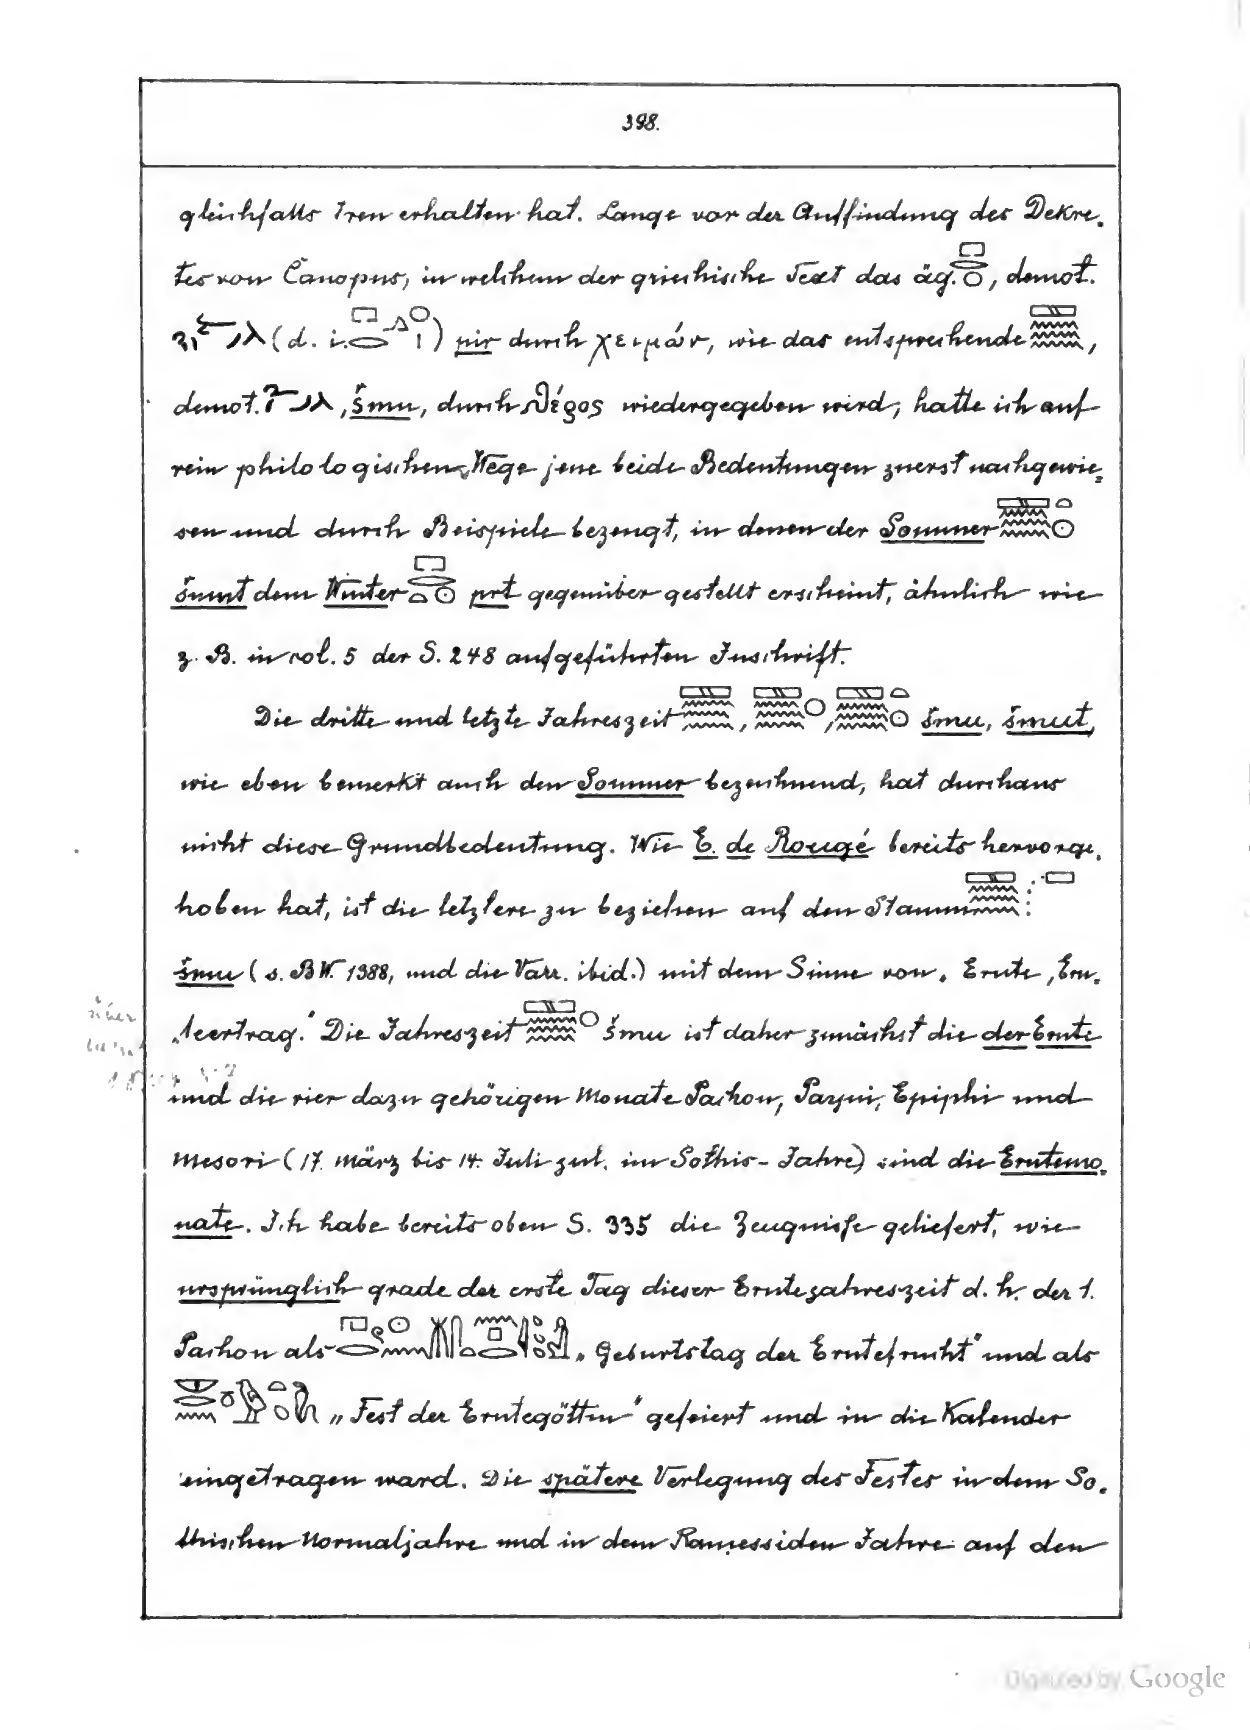 398.
gleichfalls treu erhalten hat. Lange vor der Auffindung des Dekre-
tes von Canopus, in welchem der griechische Text das äg. 𓉐𓂋𓇳, demot.
(d. i. 𓉐𓂋𓂻𓇳𓏤) pir durch χειμών, wie das entsprechende 𓈙𓈗,
demot. , šmu, durch θέρος wiedergegeben wird, hatte ich auf
rein philologischem Wege jene beide Bedeutungen zuerst nachgewie-
sen und durch Beispiele bezeugt, in denen der Sommer 𓈙𓏏𓈗𓇳
šmut dem Winter 𓉐𓂋𓏏𓇳 prt gegenüber gestellt erscheint, ähnlich wie
z. B. in col. 5 der S. 248 aufgeführten Inschrift.
Die dritte und letzte Jahreszeit 𓈙𓈗, 𓈙𓈗𓇳, 𓈙𓏏𓈗𓇳 šmu, šmut,
wie eben bemerkt auch den Sommer bezeichnend, hat durchaus
nicht diese Grundbedeutung. Wie E. de Rougé bereits hervorge-
hoben hat, ist die letztere zu beziehen auf den Stamm 𓈙𓈗
šmu (s. BW. 1388, und die Varr. ibid.) mit dem Sinne von „Ernte, Ern-
teertrag.“ Die Jahreszeit 𓈙𓈗𓇳 šmu ist daher zunächst die der Ernte
und die vier dazu gehörigen Monate Pachon, Payni, Epiphi und
Mesori (17. März bis 14. Juli jul. im Sothis-Jahre) sind die Erntemo-
nate. Ich habe bereits oben S. 335 die Zeugnisse geliefert, wie
ursprünglich grade der erste Tag dieser Erntejahreszeit d. h. der 1.
Pachon als „Geburtstag der Erntefrucht“ und als
„Fest der Erntegöttin“ gefeiert und in die Kalender
eingetragen ward. Die spätere Verlegung des Festes in dem So-
thischen Normaljahre und in dem Ramessiden Jahre auf den
Digitized by Google